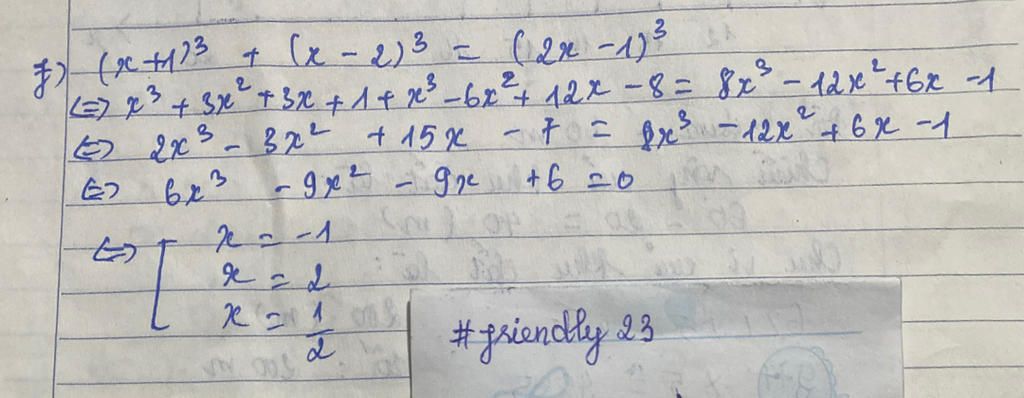 f) (x+1)³ + (x - 2)³ = (2x - 1)³
⇔ x³ + 3x² + 3x + 1 + x³ - 6x² + 12x - 8 = 8x³ - 12x² + 6x - 1
⇔ 2x³ - 3x² + 15x - 7 = 8x³ - 12x² + 6x - 1
⇔ 6x³ - 9x² - 9x + 6 = 0
⇔ [ x = -1
x = 2
x = 1/2
#friendly 23